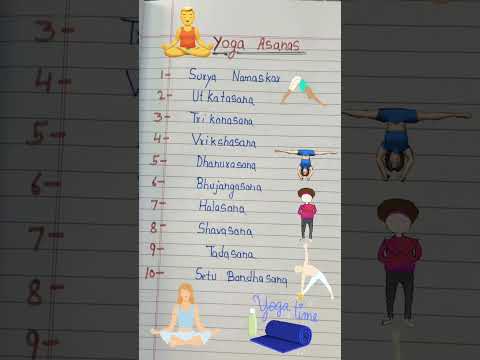 Yoga Asanas
1- Surya Namaskar
2- Utkatasana
3- Trikonasana
4- Vrikshasana
5- Dhanurasana
6- Bhujangasana
7- Halasana
8- Shavasana
9- Tadasana
10- Setu Bandhasana
Yoga time
3-
4-
5-
6-
7-
8-
9-